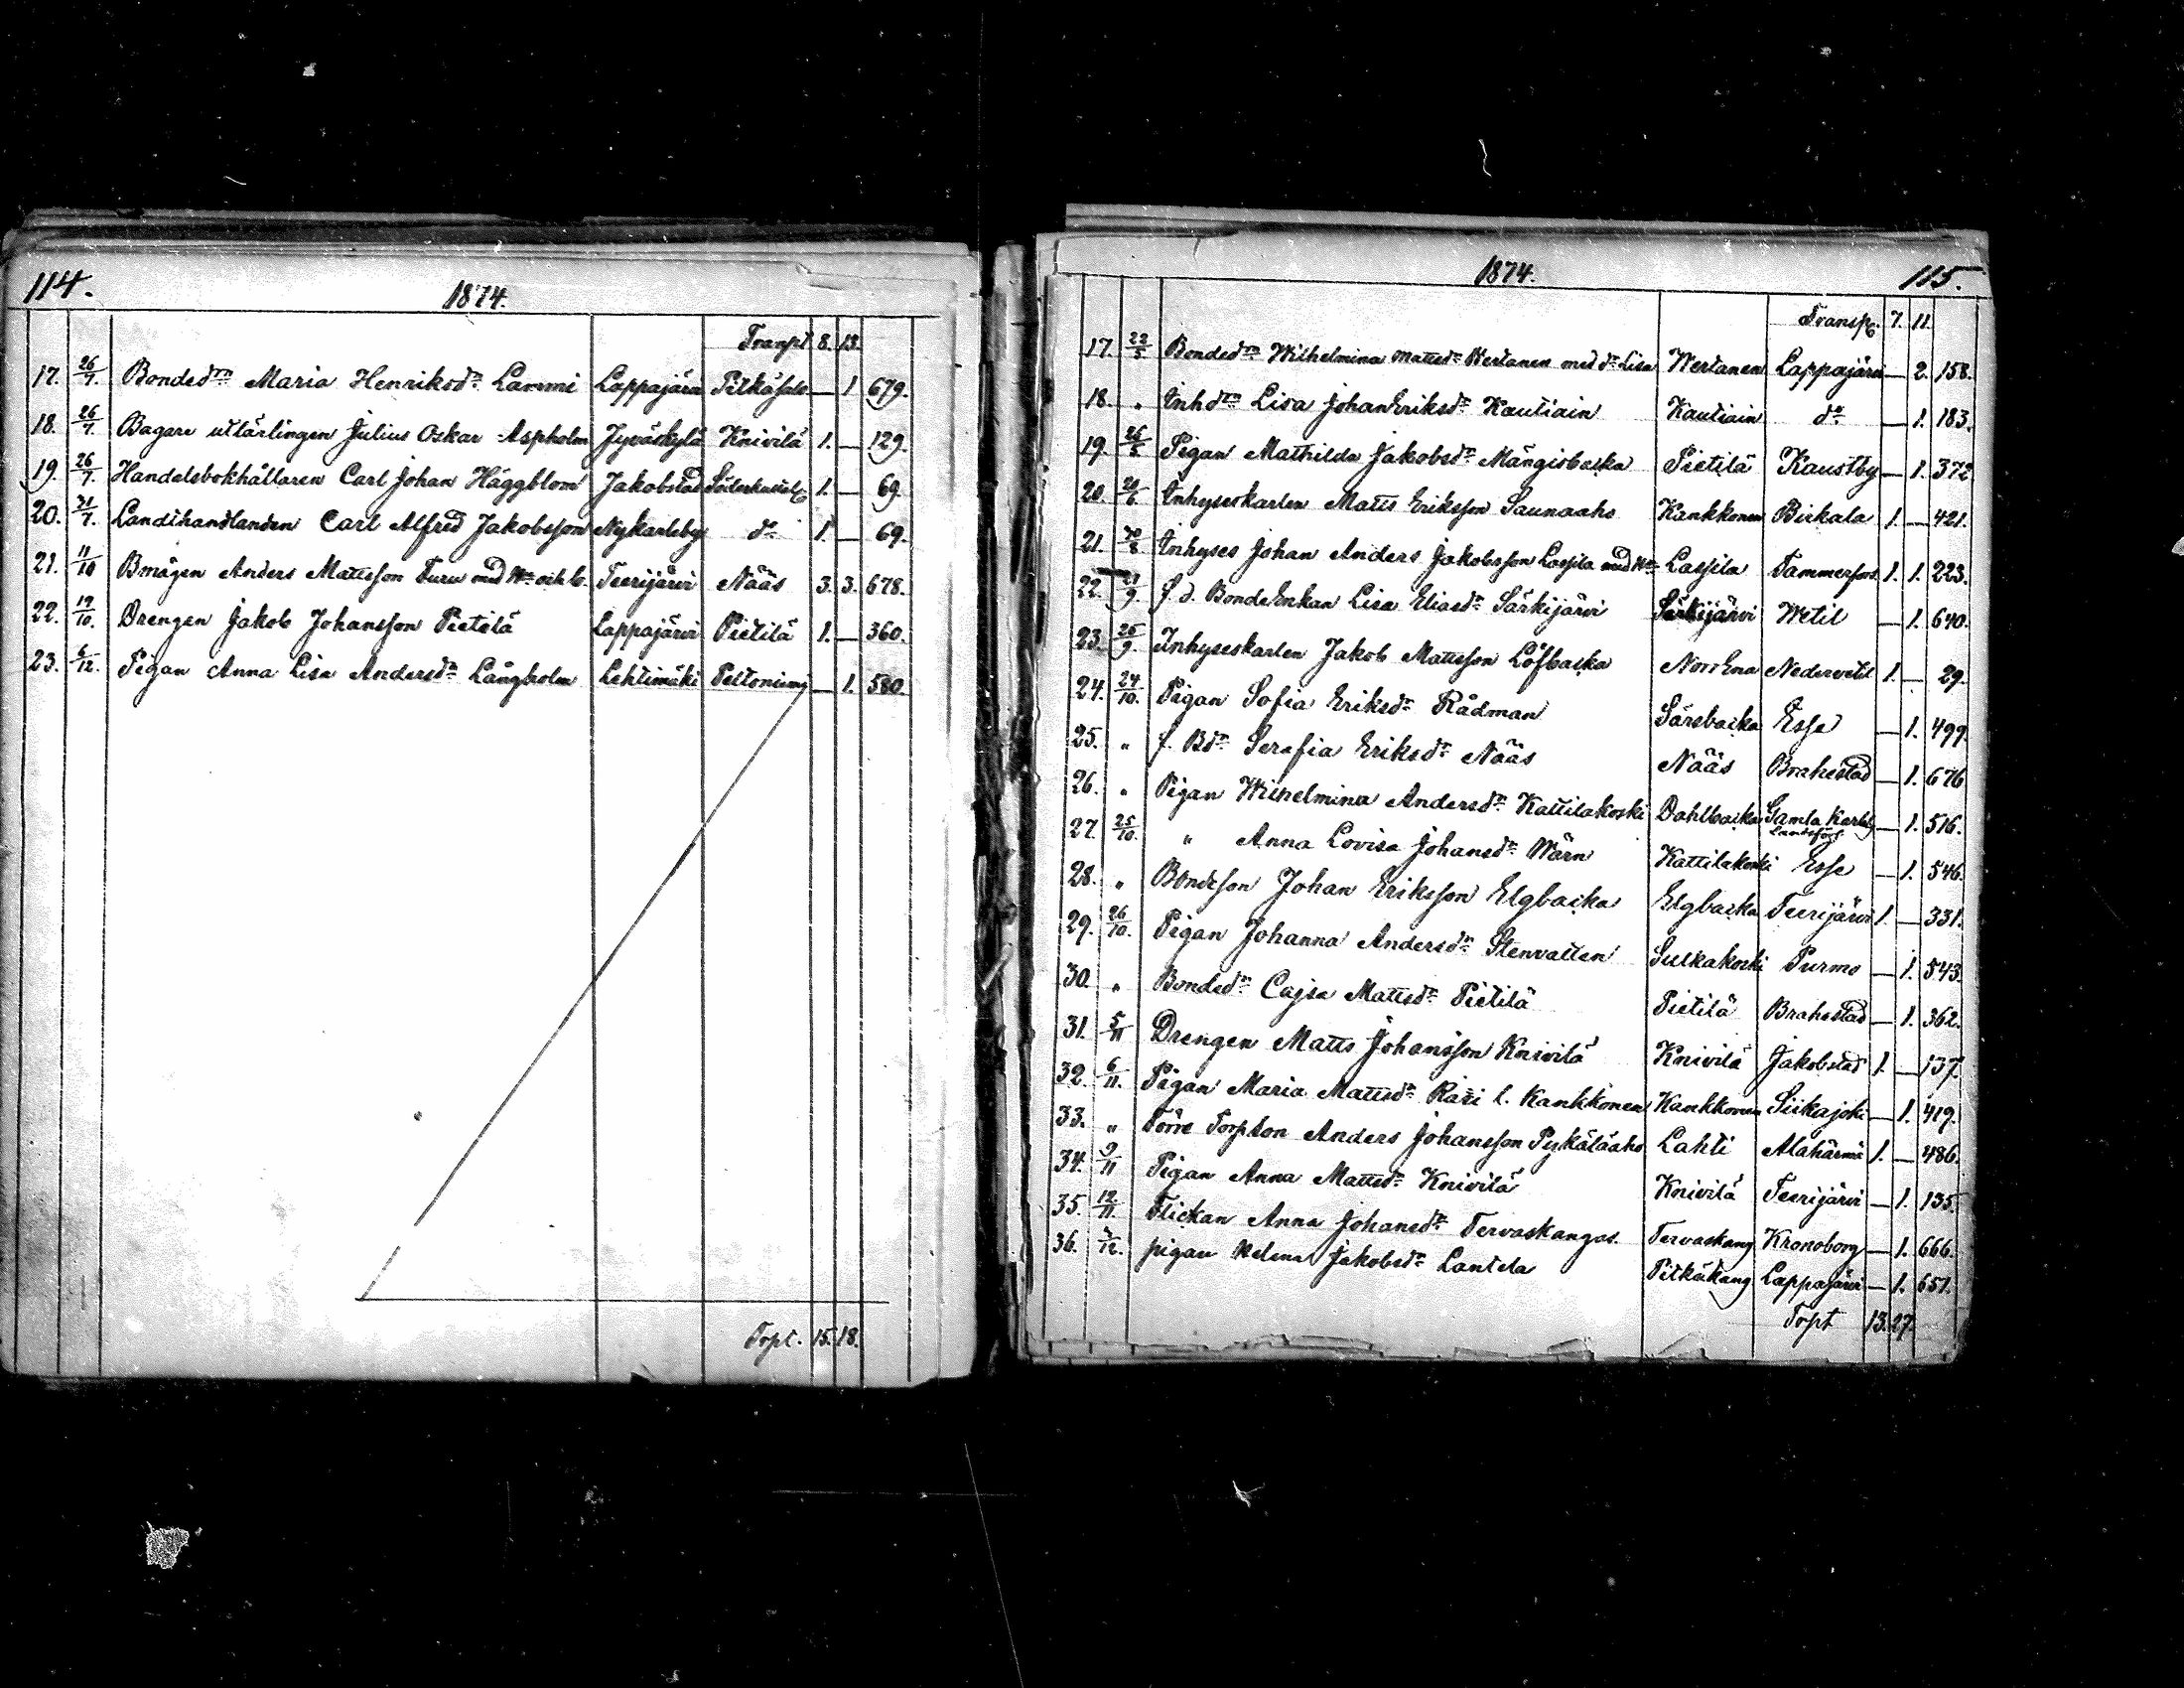 114.
1874.
Tranpt 8. 13.
17. 26/7. Bondedrn Maria Henriksdr Lammi Lappajärvi Pitkäsalo — 1 679.
18. 26/7. Bagare utlärlingen Julius Oskar Aspholm Jyväskylä Knivilä 1. — 129.
19. 26/7. Handelsbokhållaren Carl Johan Häggblom Jakobstad 1. — 69.
20. 31/7. Landthandlanden Carl Alfred Jakobsson Nykarleby do 1 — 69.
21. 11/10 Bmågen Anders Mattsson Turu med Hu och b. Teerijärvi Nääs 3. 3. 678.
22. 12/10. Drengen Jakob Johansson Pietilä Lappajärvi Pietilä 1. — 360.
23. 6/12. Pigan Anna Lisa Andersdr Långholm Lehtimäki Peltoniemi — 1. 580
Tspt. 15. 18.
1874. 115.
Transp. 7. 11.
17. 22/5 Bondedrn Wilhelmina Mattsdr Wertanen med dr Lisa Wertanen Lappajärvi — 2. 158.
18. " Inhdrn Lisa Johan Eriksdr Kautiain Kautiain do — 1. 183.
19. 26/5 Pigan Mathilda Jakobsdr Mängisbacka Pietilä Kaustby — 1. 372
20. 20/6 Inhyseskarlen Matts Eriksson Saunaaho Kankkonen Birkala 1. — 421.
21. 30/8 Inhyses Johan Anders Jakobsson Lassila med Hu Lassila Tammerfors 1. 1. 223.
22. 21/9. f. d. BondeEnkan Lisa Eliasdr Särkijärvi Särkijärvi Wetil — 1. 640.
23. 25/9. Inhyseskarlen Jakob Mattsson Löfbacka NorrEna Nedervetil 1. — 29.
24. 24/10. Pigan Sofia Eriksdr Rådman Särsbacka Esse — 1. 499.
25. " f. Bdr Serafia Eriksdr Nääs Nääs Brahestad — 1. 676
26. " Pigan Wilhelmina Andersdr Kattilakoski Dahlbacka Gamla Karleby Landsförs. — 1. 516.
27. 25/10. " Anna Lovisa Johansdr Wärn Kattilakoski Esse — 1. 546.
28. " Bondeson Johan Eriksson Elgbacka Elgbacka Teerijärvi 1. — 331.
29. 26/10. Pigan Johanna Andersdr Stenvatten Sulkakoski Purmo — 1. 543.
30. " Bondedr Cajsa Mattsdr Pietilä Pietilä Brahestad — 1. 362.
31. 5/11 Drengen Matts Johansson Knivilä Knivilä Jakobstad 1. — 137.
32. 6/11. Pigan Maria Mattsdr Räri l. Kankkonen Kankkonen Siikajoki — 1. 419.
33. " Förre Torpson Anders Johansson Pykäläaho Lahti Alahärmä 1. — 486.
34. 9/11 Pigan Anna Mattsdr Knivilä Knivilä Teerijärvi — 1. 135.
35. 12/11. Flickan Anna Johansdr Tervaskangas. Tervaskang Kronoborg — 1. 666.
36. 4/12. pigan Helena Jakobsdr Lantela Pitkäkang Lappajärvi — 1. 651.
Tspt 13. 27.